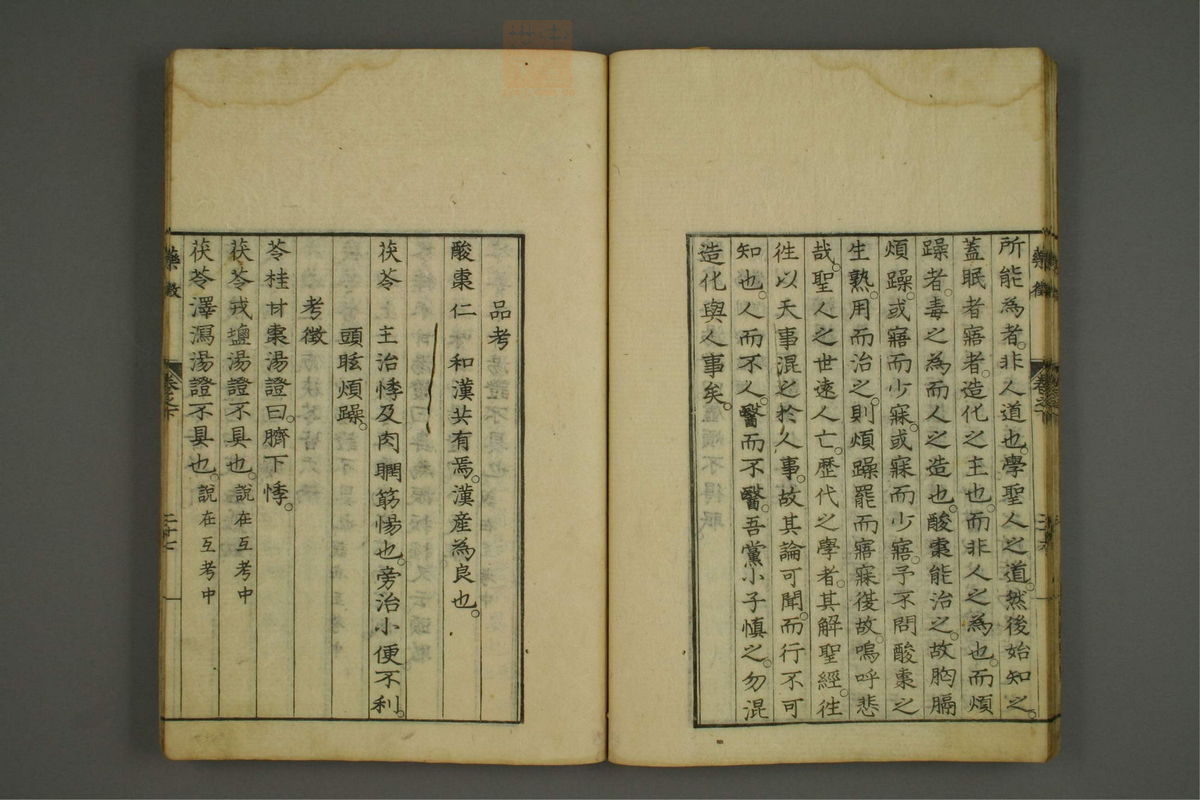 所能為者。非人道也。學聖人之道。然後始知之。
蓋眠者寤者。造化之主也。而非人之為也。而煩
躁者。毒之為而人之造也。酸棗能治之。故胸膈
煩躁。或寤而少寐。或寐而少寤。予不問酸棗之
生熟。用而治之。則煩躁罷而寤寐復故。嗚呼悲
哉。聖人之世遠人亡。歷代之學者。其解聖經。往
往以天事混之於人事。故其論可聞。而行不可
知也。人而不人。醫而不醫。吾黨小子慎之。勿混
造化與人事矣。
藥徵
卷之下
二十六
品考
酸棗仁 和漢共有焉。漢產為良也。
茯苓 主治悸及肉瞤筋惕也。旁治小便不利。
頭眩煩躁。
考徵
苓桂甘棗湯證曰。臍下悸。
茯苓戎鹽湯證不具也。說在互考中
茯苓澤瀉湯證不具也。說在互考中
藥徵
卷之下
二十七